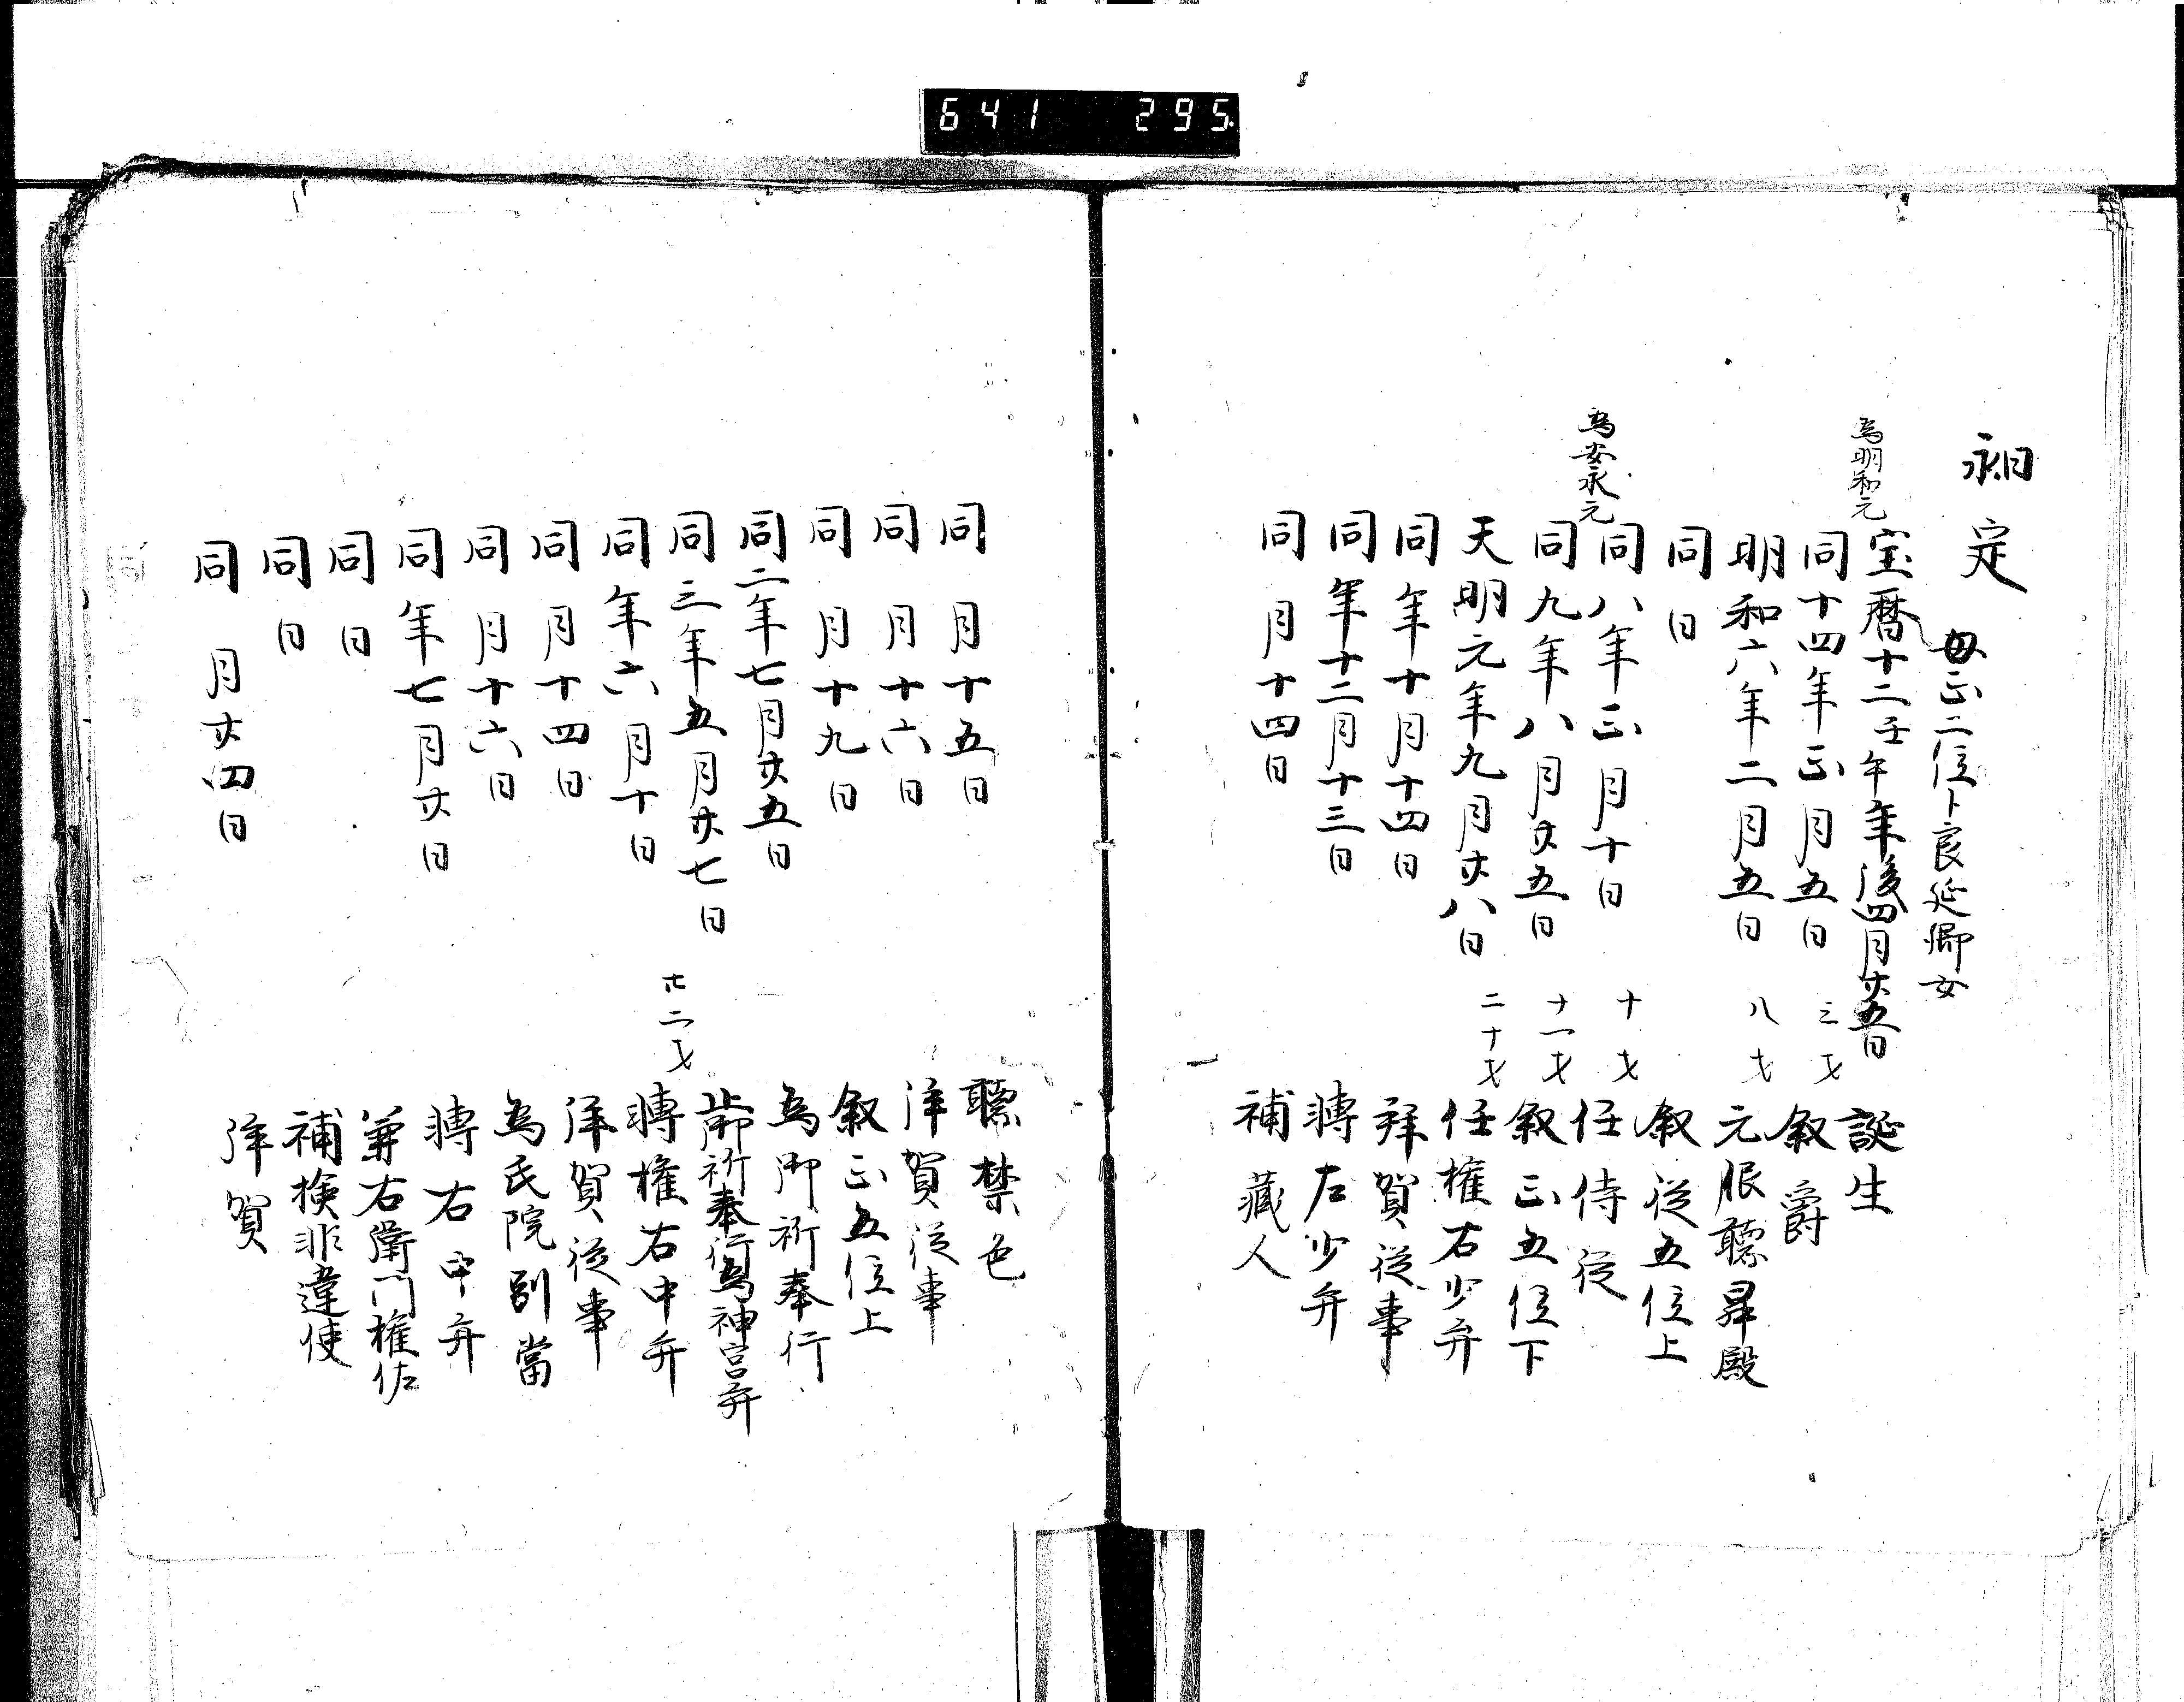 641 295.
昶定
母正二位卜良延卿女
為明和元
宝暦十二壬午年後四月廿五日 誕生
同十四年正月五日 三才 叙爵
明和六年二月五日 八才 元服聽昇殿
同日 叙従五位上
為安永元
同八年正月十日 十才 任侍従
同九年八月廿五日 十一才 叙正五位下
天明元年九月廿八日 二十才 任権右少弁
同年十月十四日 拜賀従事
同年十二月十三日 轉左少弁
同月十四日 補蔵人
同月十五日 聽禁色
同月十六日 拜賀従事
同月十九日 叙正五位上
同二年七月廿五日 為御祈奉行
同三年五月廿七日 止御祈奉行為神宮弁
同年六月十日 廿二才 轉権右中弁
同月十四日 拜賀従事
同月十六日 為氏院別當
同年七月廿日 轉右中弁
同日 兼右衛門権佐
同日 補検非違使
同月廿四日 拜賀